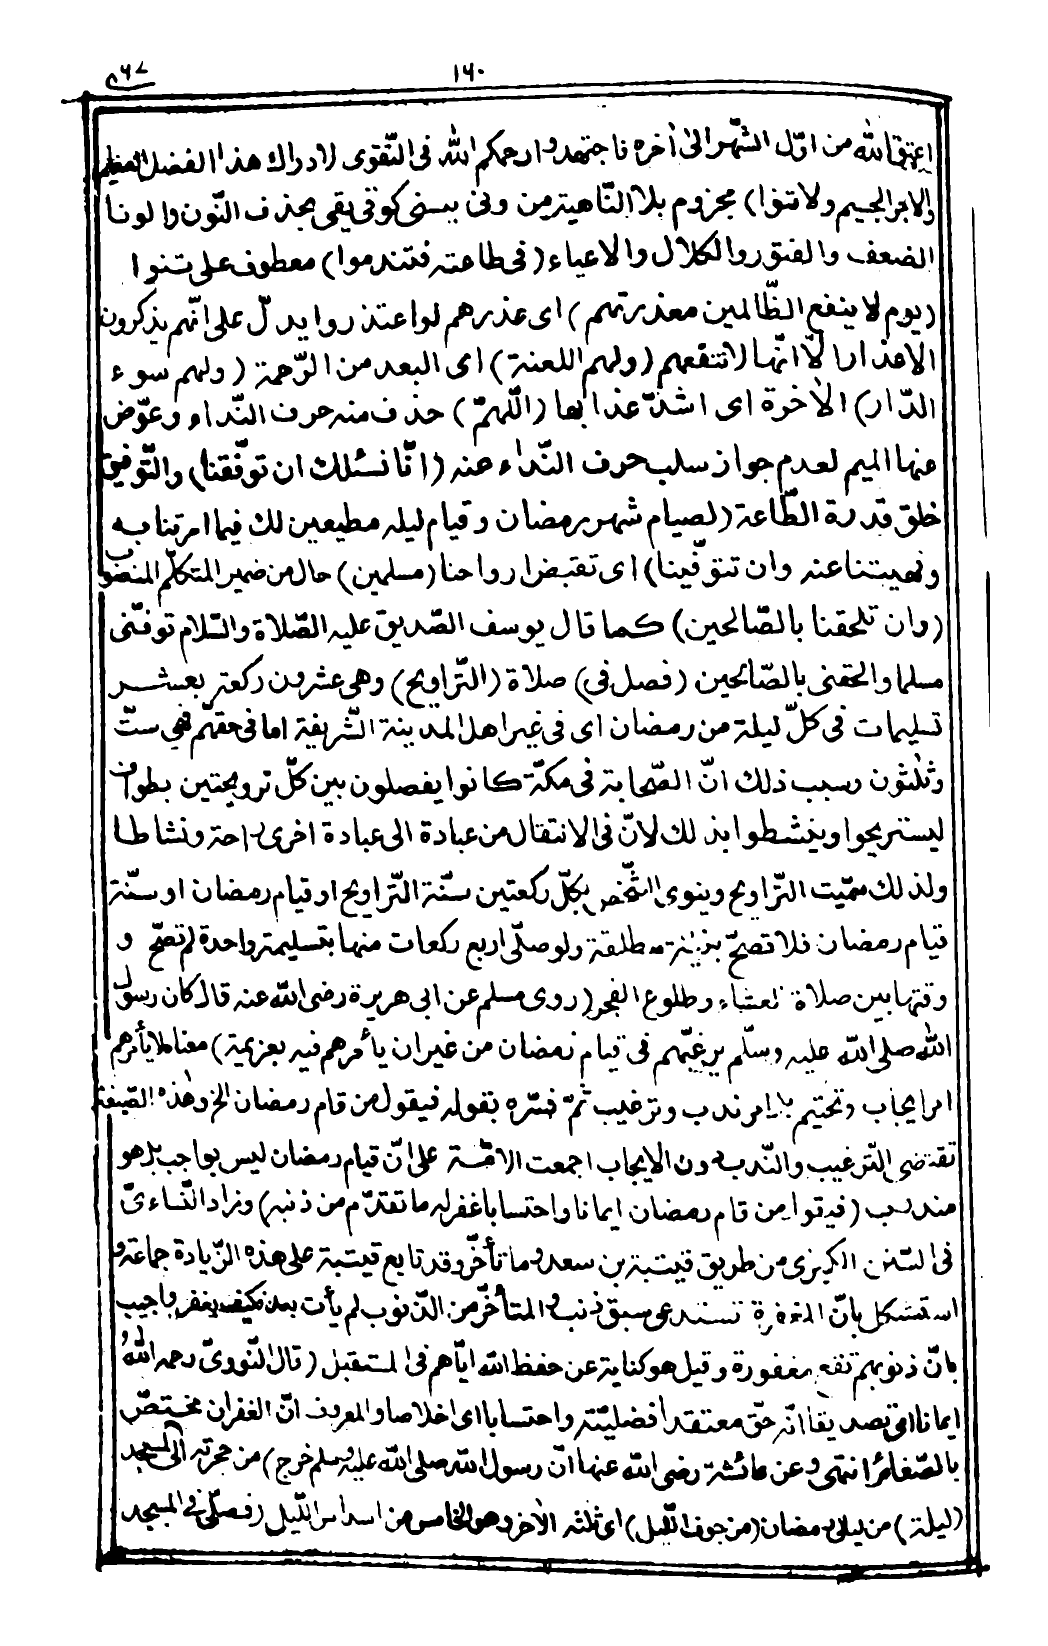 ١٦٠
اعتق الله من اوّل الشّهر الىٰ أخره فاجتهدوا رحمكم الله فى التّقوى لادراك هذا الفضل العظيم
والاجر الجسيم ولا تنوا) مجزوم بلا النّاهية من ونى ينى كوقى يقى بحذف النّون والونا
الضعف والفتور والكلال والاعياء (فى طاعته فتندموا) معطوف على تنوا
(يوم لا ينفع الظّالمين معذرتهم) اى عذرهم لو اعتذروا يدلّ على انّهم يذكرون
الاعذار الّا انّها لا تنفعهم (ولهم اللعنة) اى البعد من الرّحمة (ولهم سوء
الدّار) الأخرة اى اشدّ عذابها (اللّهمّ) حذف منه حرف النّداء وعوّض
عنها الميم لعدم جواز سلب حرف النّداء عنه (انّا نسئلك ان توفّقنا) والتّوفيق
خلق قدرة الطّاعة (لصيام شهر رمضان وقيام ليله مطيعين لك فيما امرتنا به
ونهيتنا عنه وان تتوفّينا) اى تقبض ارواحنا (مسلمين) حال من ضمير المتكلّم المنصوب
(وان تلحقنا بالصّالحين) كما قال يوسف الصّديق عليه الصّلاة والسّلام توفّنى
مسلما والحقنى بالصّالحين (فصل فى) صلاة (التّراويح) وهى عشرون ركعة بعشر
تسليمات فى كلّ ليلة من رمضان اى فى غير اهل المدينة الشّريفة اما فى حقّهم فهى ستّ
وثلثون وسبب ذلك انّ الصّحابة فى مكّة كانوا يفصلون بين كلّ ترويحتين بطواف
ليستريحوا وينشطوا بذلك لانّ فى الانتقال من عبادة الى عبادة اخرى راحة ونشاطا
ولذلك سمّيت التّراويح وينوى الشّخص بكلّ ركعتين سنّة التّراويح او قيام رمضان او سنّة
قيام رمضان فلا تصحّ بنيّة مطلقة ولو صلّى اربع ركعات منها بتسليمة واحدة لم تصحّ و
وقتها بين صلاة العشاء وطلوع الفجر (روى مسلم عن ابى هريرة رضى الله عنه قال كان رسول
الله صلى الله عليه وسلّم يرغّبهم فى قيام رمضان من غير ان يأمرهم فيه بعزيمة) معناه لا يأمرهم
امر ايجاب وتحتيم بل امر ندب وترغيب ثمّ فسّره بقوله فيقول من قام رمضان الخ وهذه الصّيغة
تقتضى التّرغيب والنّدب دون الايجاب اجمعت الامّة على انّ قيام رمضان ليس بواجب بل هو
مندوب (فيقول من قام رمضان ايمانا واحتسابا غفر له ما تقدّم من ذنبه) وزاد النّساءىّ
فى السّنن الكبرى من طريق قتيبة بن سعد وما تأخّر وقد تابع قتيبة على هذه الزّيادة جماعة و
استشكل بانّ المغفرة تستدعى سبق ذنب والمتأخّر من الذّنوب لم يأت بعد فكيف يغفر واجيب
بانّ ذنوبهم تقع مغفورة وقيل هو كناية عن حفظ الله ايّاهم فى المستقبل (قال النّووىّ رحمه الله
ايمانا اى تصديقا انّه حقّ معتقدا فضليّته واحتسابا اى اخلاصا والمعروف انّ الغفران مختصّ
بالصّغائر انتهى وعن عائشة رضى الله عنها انّ رسول الله صلى الله عليه وسلم خرج) من حجرته الى المسجد
(ليلة) من ليالى رمضان (من جوف اللّيل) اى ثلثه الأخر وهو الخامس من اسداس اللّيل (فصلّى فى المسجد